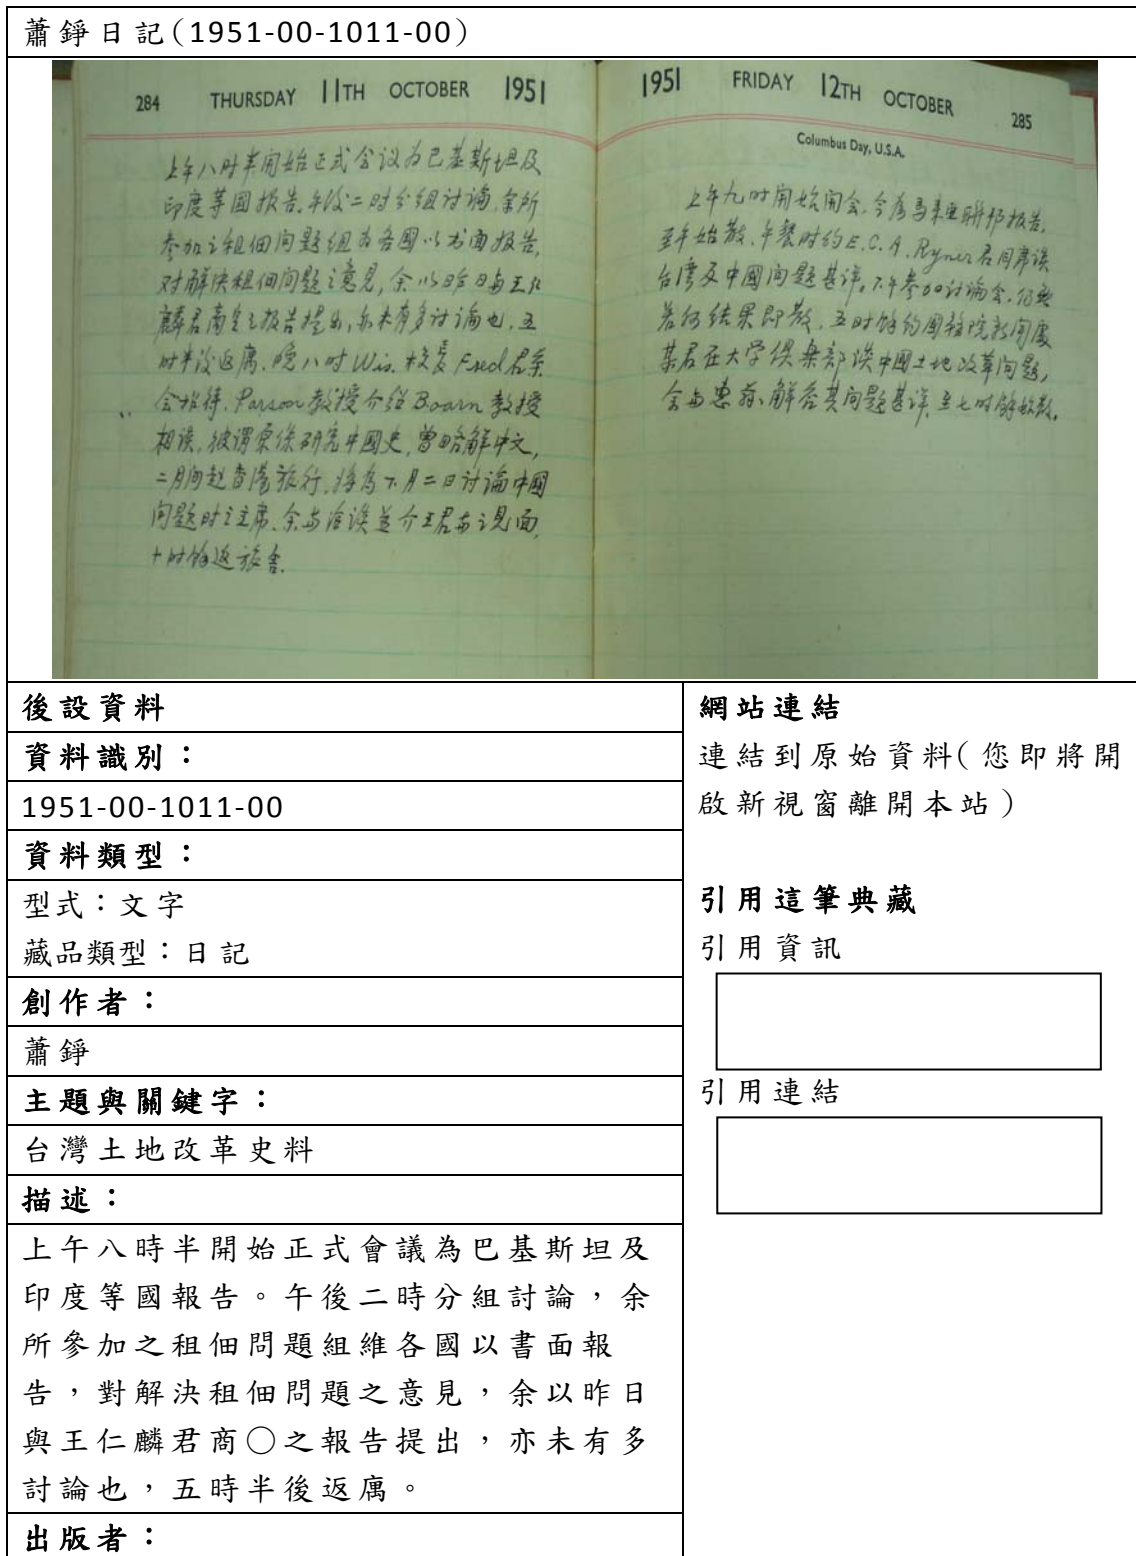 蕭錚日記(1951-00-1011-00)
284 THURSDAY 11TH OCTOBER 1951
上午八时半開始正式会议为巴基斯坦及
印度等国报告.午後二时分组讨论,余所
参加之租佃问题组为各国以书面报告,
对解决租佃问题之意見,余以昨日与王仁
麟君商 之报告提出,亦未有多讨论也,五
时半後返寓.晚八时Wis.校長Fred君茶
会招待.Parson教授介绍Boarn教授
相谈,彼谓原係研究中國史,曾略解中文,
二月间赴香港旅行.将为下月二日讨论中國
问题时之主席.余与洽谈並介王君与之見面,
十时馀返旅舍.
1951 FRIDAY 12TH OCTOBER 285
Columbus Day, U.S.A.
上午九时開始開会,今为馬来亚聯邦报告,
至午始散.午餐时约E.C.A.Ryner君同席谈
台湾及中國问题甚详。下午参加讨论会,仍無
若何结果即散.五时馀约国務院新闻處
某君在大学俱楽部谈中國土地改革问题,
余与惠 解答其问题甚详.至七时馀始散.
後設資料
資料識別：
1951-00-1011-00
資料類型：
型式：文字
藏品類型：日記
創作者：
蕭錚
主題與關鍵字：
台灣土地改革史料
描述：
上午八時半開始正式會議為巴基斯坦及
印度等國報告。午後二時分組討論，余
所參加之租佃問題組維各國以書面報
告，對解決租佃問題之意見，余以昨日
與王仁麟君商○之報告提出，亦未有多
討論也，五時半後返寓。
出版者：
網站連結
連結到原始資料(您即將開
啟新視窗離開本站)
引用這筆典藏
引用資訊
引用連結